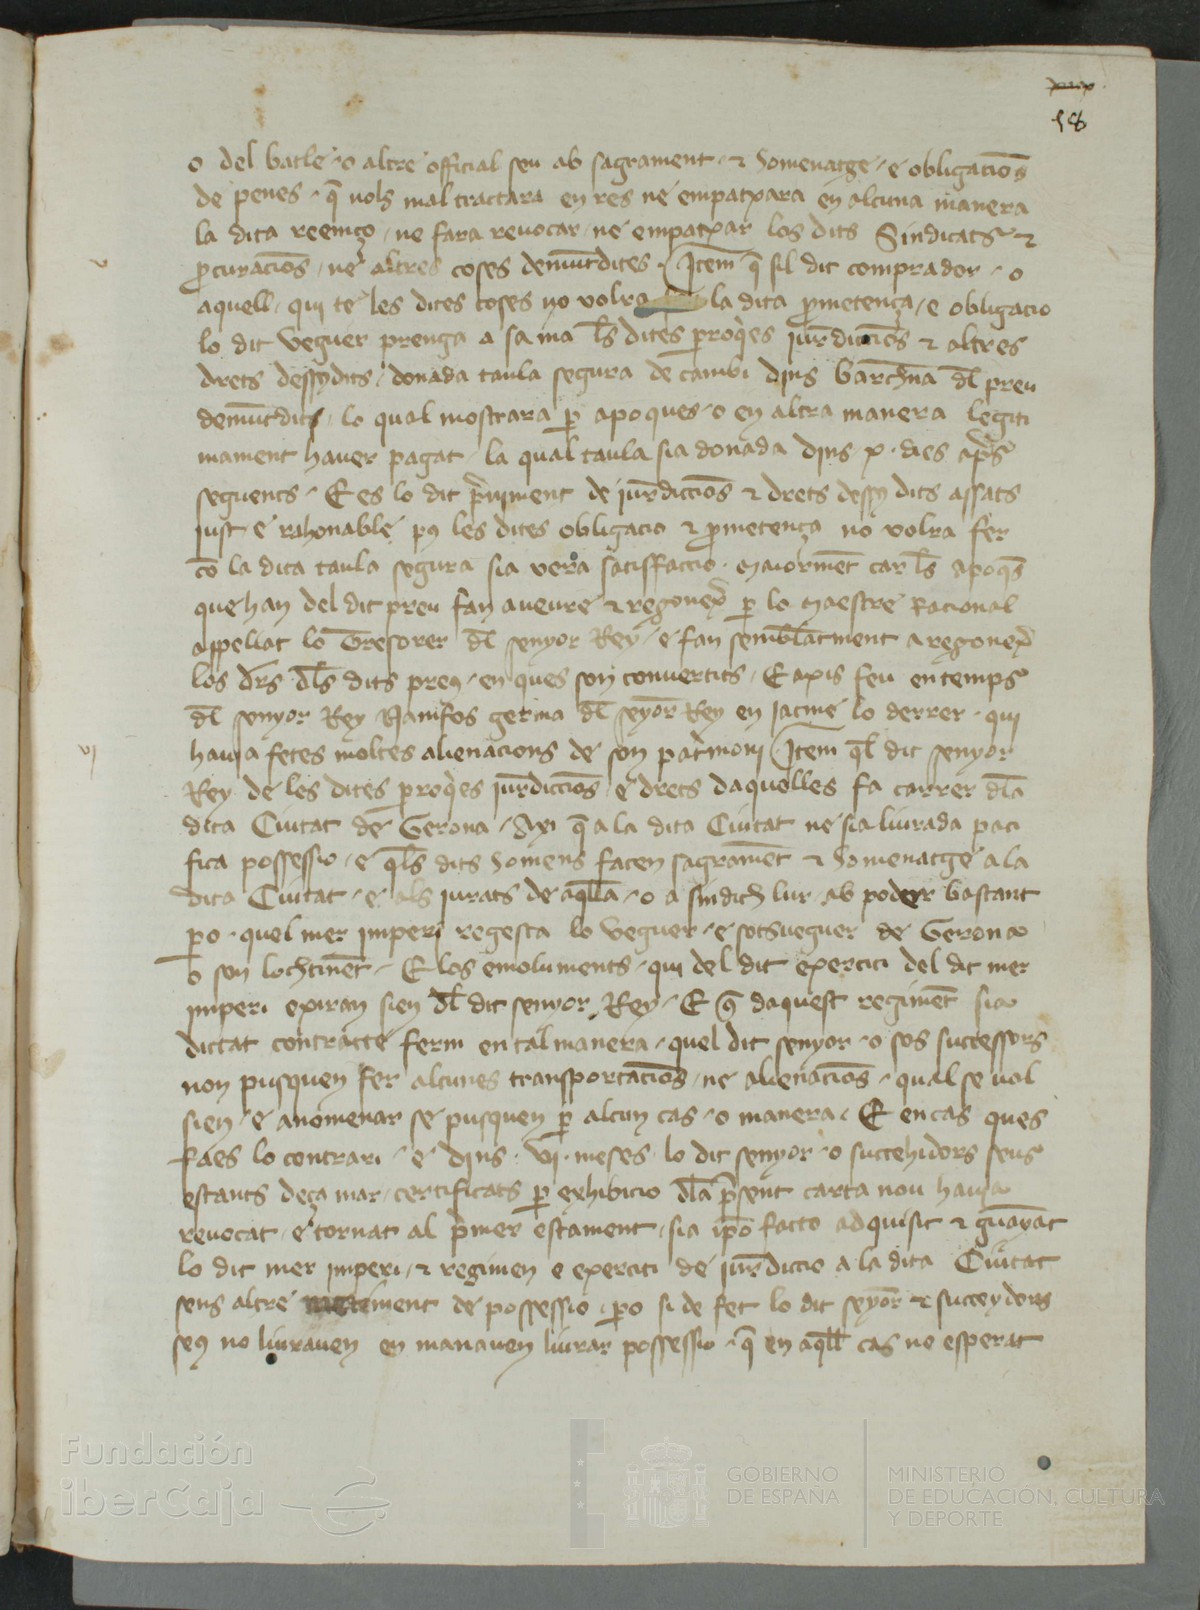 58
o del batle o altre official seu ab sagrament ⁊ homenatge e obligaciōs
de penes q̄ nols mal tractara en res ne empatxara en alcuna manera
la dita reemço ne fara reuocar ne empatxar los dits Sindicats ⁊
ꝓcuraciōs ne altres coses demūtdites Item q̄ sil dit comprador o
v
aquell qui te les dites coses no volra la dita ꝓmetença e obligacio
lo dit veguer prenga a sa ma l̄s dites parroq̄es jur̄diccīos ⁊ altres
drets dessydits donada taula segura de cambi dīns barch̄na dl̄ preu
demūtdits lo qual mostrara ꝑ apoques o en altra manera legiti
mament hauer pagat la qual taula sia donada dīns x dies aprs̄
seguents E es lo dit p̄niment de jur̄diccīos ⁊ drets dessy dits assats
just e rahonable pus les dites obligacio ⁊ ꝓmetença no volra fer
cō la dita taula segura sia vera satisfaccio maiormēt car l̄s apoq̄s
que han del dit preu fan aueure ⁊ regonex̄ ꝑ lo maestre Racional
appellat lo Tresorer dl̄ senyor Rey e fan semblātment a regonex̄
los dr̄s dl̄s dits preus en ques son conuertits E axis feu en temps
dl̄ senyor Rey Namfos germa dl̄ seyōr Rey en Jacme lo derrer qui
hauia fetes moltes alienacions de son pat̄moni Item ql̄ dit senyor
vj
Rey de les dites parroq̄es jur̄diccīos e drets daquelles fa carrer dl̄a
dita Ciutat de Gerona Axi q̄ a la dita Ciutat ne sia liurada paci
fica possessio e ql̄s dits homens facen sagramēt ⁊ homenatge a la
dita Ciutat e als jurats de aq̄lla o a sindich lur ab poder bastant
ꝑo quel mer imperi regesca lo veguer e sotsueguer de Gerona
o son lochtinēt E los emoluments qui del dit exercici del dit mer
imperi exiran sien dl̄ dit senyor Rey E q̄ daquest regimēt sia
dictat contracte ferm en tal manera quel dit senyor o sos successors
non pusquen fer alcunes transportaciōs ne alienaciōs qual se vol
sien e anomenar se pusquen ꝑ alcun cas o manera E en cas ques
faes lo contrari e dīns vi meses lo dit senyor o succehidors seus
estants deça mar certificats ꝑ exhibicio dl̄a p̄sent carta nou hauia
reuocat e tornat al p̄mer estament sia ip̄o facto adquisit ⁊ guāyat
lo dit mer imperi ⁊ regimen e exercici de jur̄diccio a la dita Ciutat
sens altre de possessio ꝑo si de fet lo dit seyōr ⁊ succeydors
seus no liurauen en manauen liurar possessio q̄ en aq̄ll cas ne esperat
Fundación
iberCaja
GOBIERNO
DE ESPAÑA
MINISTERIO
DE EDUCACIÓN, CULTURA
Y DEPORTE